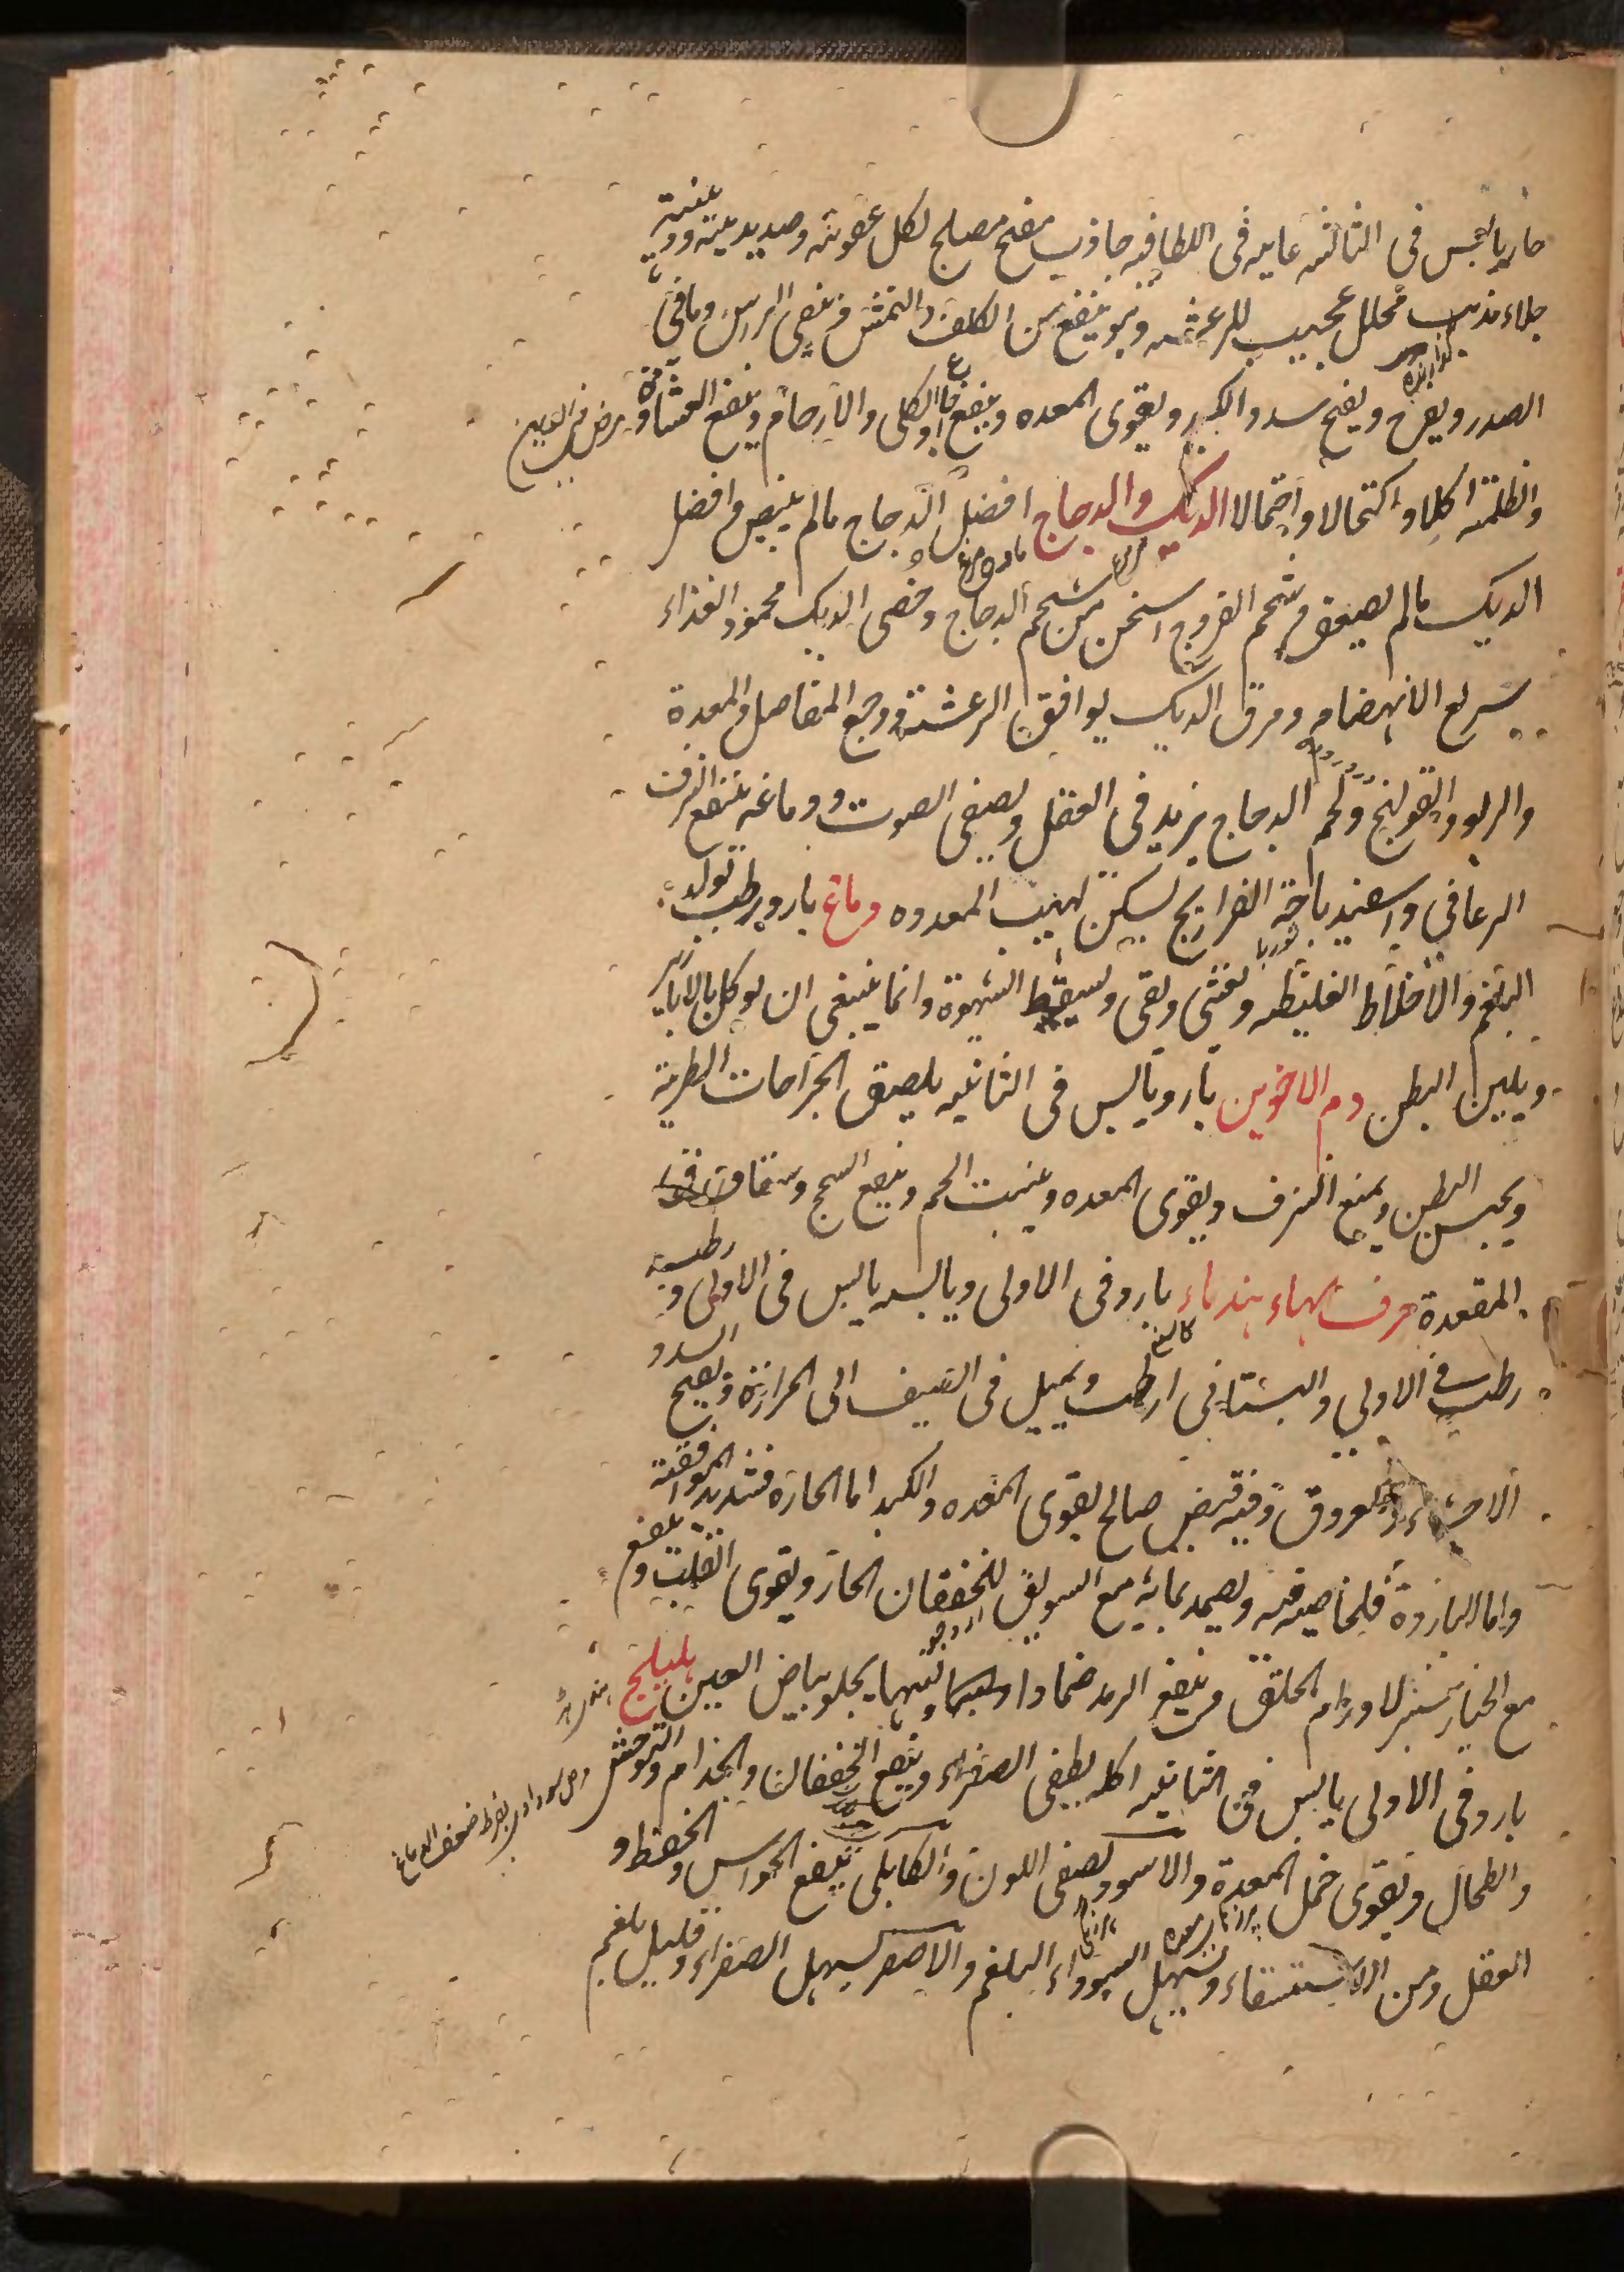 حار يابس في الثالثة غاية في اللطافة جاذب مفتح مصلح لكل عفونة وصديد ميتة ودوية عفنية
جلاء مذيب محلل عجيب للرعشة وهو ينفع من الكلف والنمش وينقي الراس وما في
الصدر ويفرح ويفتح سدد الكبد ويقوي المعدة وينفع اوجاع الكلى والارحام وينفع الغشاوة
مرض في العين
والظلمة اكلا واكتحالا واحتمالا الديك والدجاج افضل الدجاج ما لم يبض وافضل
الديك ما لم يصعق وشحم الفروج اسخن من شحم الدجاج وخصى الديك محمود الغذاء
سريع الانهضام ومرق الديك يوافق الرعشة ووجع المفاصل والمعدة
والربو والقولنج ولحم الدجاج يزيد في العقل ويصفي الصوت ودماغه ينفع النزف
الرعافي واسفيدباجة الفراريج يسكن لهيب المعدة دماغ بارد رطب تولد
البلغم والاخلاط الغليظة ويغثي ويقي ويسقط الشهوة وانما ينبغي ان يوكل بالابازير
ويلين البطن دم الاخوين بارد يابس في الثانية يلصق الجراحات الطرية
ويحبس البطن ويمنع النزف ويقوي المعدة وينبت اللحم وينفع السحج وشقاق
المقعدة حرف الهاء هندباء بارد في الاولى ويابسه يابس في الاولى ورطبه
رطب في الاولى والبستاني ارطب ويميل في الصيف الى الحرارة ويفتح السدد
الاحشاء والعروق وفيه قبض صالح يقوي المعدة والكبد اما الحارة فشديد الموافقة
واما الباردة فلخاصية فيه ويضمد بمائه مع السويق للخفقان الحار ويقوي القلب وينفع
مع الخيارشنبر لاورام الحلق وينفع الرمد ضمادا ولبنها يجلو بياض العين هليلج
بارد في الاولى يابس في الثانية اكله يطفي الصفراء وينفع الخفقان والجذام والتوحش
والطحال ويقوي خمل المعدة والاسود يصفي اللون والكابلي ينفع الحواس والحفظ و
العقل ومن الاستسقاء ويسهل السوداء البلغم والاصفر يسهل الصفراء وقليل بلغم